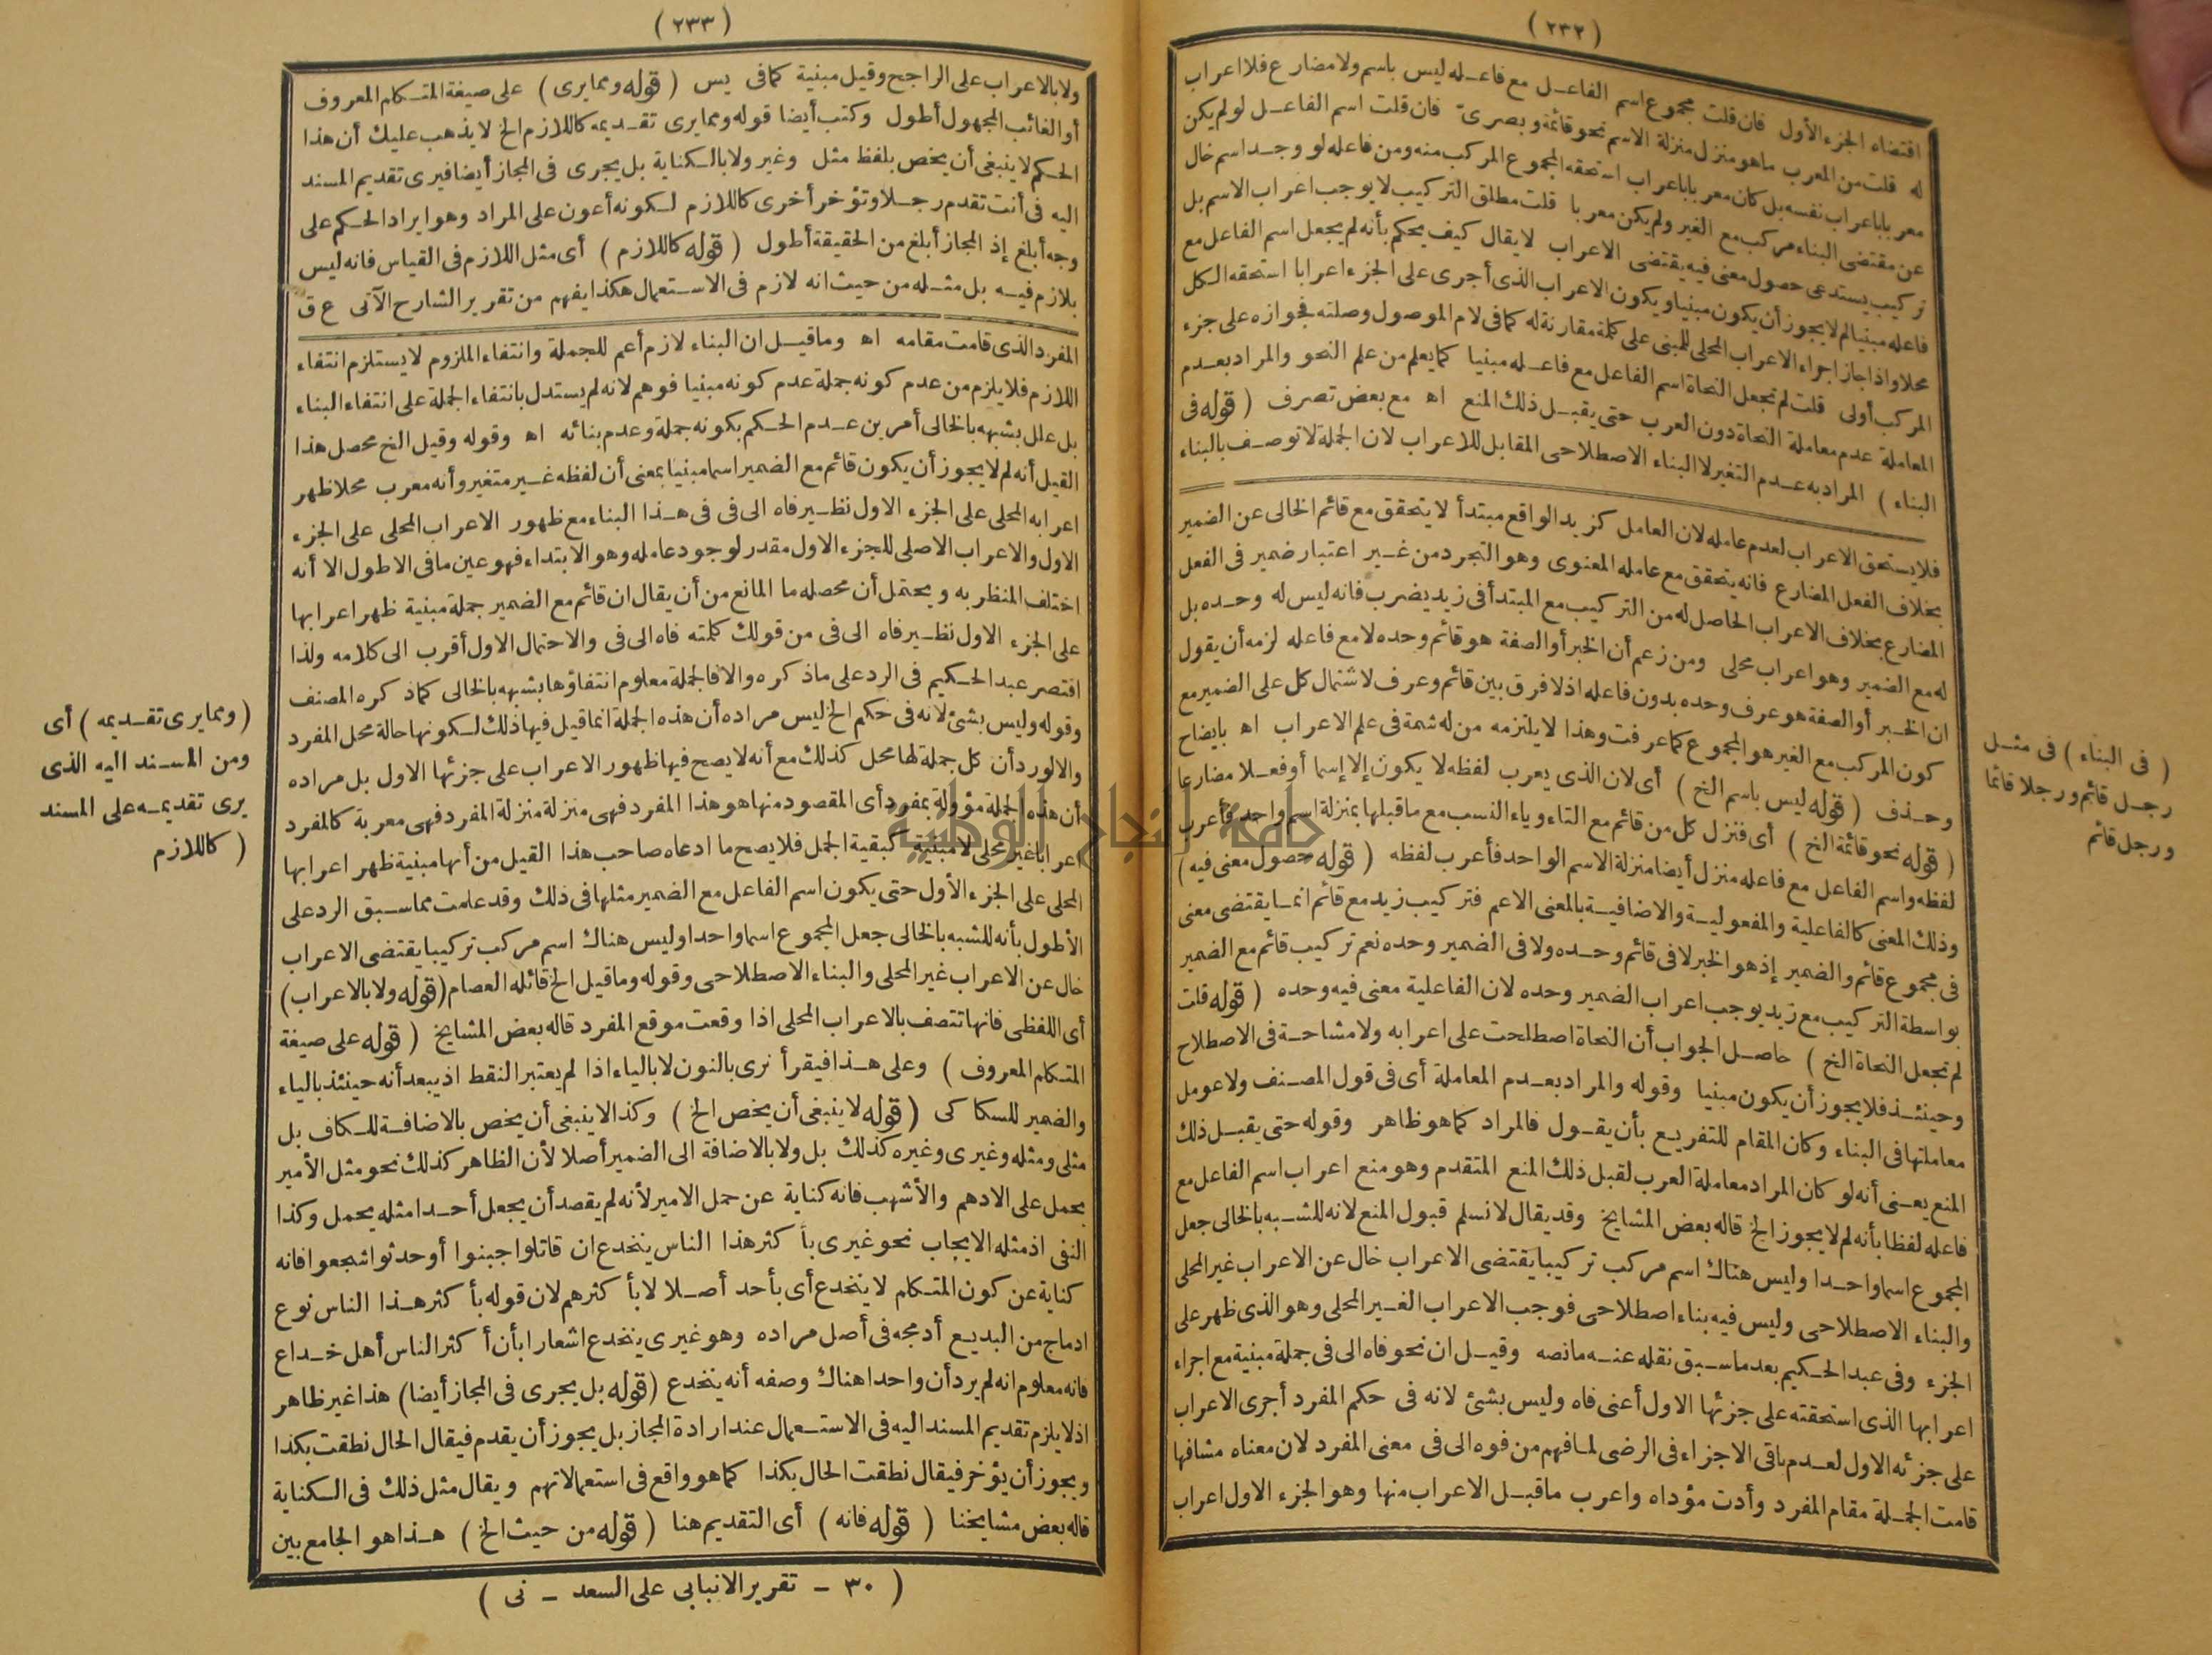 ( ٢٣٢ )
اقتضاه الجزء الأول فان قلت مجموع اسم الفاعل مع فاعله ليس باسم ولا مضارع فلا اعراب
له قلت من المعرب ما هو منزل منزلة الاسم نحو قائمة وبصرى فان قلت اسم الفاعل لو لم يكن
معربا باعراب نفسه بل كان معربا باعراب استحقه المجموع المركب منه ومن فاعله لو وجد اسم خال
عن مقتضى البناء مركب مع الغير ولم يكن معربا قلت مطلق التركيب لا يوجب اعراب الاسم بل
تركيب يستدعى حصول معنى فيه يقتضى الاعراب لا يقال كيف يحكم بأنه لم يجعل اسم الفاعل مع
فاعله مبنيا لم لا يجوز أن يكون مبنيا ويكون الاعراب الذى أجرى على الجزء اعرابا استحقه الكل
محلا واذا جاز اجراء الاعراب المحلى للمبنى على كلمة مقارنة له كما فى لام الموصول وصلته فجوازه على جزء
المركب أولى قلت لم تجعل النحاة اسم الفاعل مع فاعله مبنيا كما يعلم من علم النحو والمراد بعدم
المعاملة عدم معاملة النحاة دون العرب حتى يقبل ذلك المنع اه مع بعض تصرف ( قوله فى
البناء ) المراد به عدم التغير لا البناء الاصطلاحى المقابل للاعراب لان الجملة لا توصف بالبناء
فلا يستحق الاعراب لعدم عامله لان العامل كزيد الواقع مبتدأ لا يتحقق مع قائم الخالى عن الضمير
بخلاف الفعل المضارع فانه يتحقق مع عامله المعنوى وهو التجرد من غير اعتبار ضمير فى الفعل
المضارع بخلاف الاعراب الحاصل له من التركيب مع المبتدأ فى زيد يضرب فانه ليس له وحده بل
له مع الضمير وهو اعراب محلى ومن زعم أن الخبر أو الصفة هو قائم وحده لا مع فاعله لزمه أن يقول
ان الخبر أو الصفة هو عرف وحده بدون فاعله اذ لا فرق بين قائم وعرف لاشتمال كل على الضمير مع
كون المركب مع الغير هو المجموع كما عرفت وهذا لا يلتزمه من له شمة فى علم الاعراب اه بايضاح
وحذف ( قوله ليس باسم الخ ) أى لان الذى يعرب لفظه لا يكون إلا إسما أو فعلا مضارعا
( قوله نحو قائمة الخ ) أى فنزل كل من قائم مع التاء وياء النسب مع ما قبلها بمنزلة اسم واحد فأعرب
لفظه واسم الفاعل مع فاعله منزل أيضا منزلة الاسم الواحد فأعرب لفظه ( قوله حصول معنى فيه )
وذلك المعنى كالفاعلية والمفعولية والاضافية بالمعنى الاعم فتركيب زيد مع قائم انما يقتضى معنى
فى مجموع قائم والضمير إذ هو الخبر لا فى قائم وحده ولا فى الضمير وحده نعم تركيب قائم مع الضمير
بواسطة التركيب مع زيد يوجب اعراب الضمير وحده لان الفاعلية معنى فيه وحده ( قوله قلت
لم تجعل النحاة الخ ) حاصل الجواب أن النحاة اصطلحت على اعرابه ولا مشاحة فى الاصطلاح
وحينئذ فلا يجوز أن يكون مبنيا وقوله والمراد بعدم المعاملة أى فى قول المصنف ولا عومل
معاملتها فى البناء وكان المقام للتفريع بأن يقول فالمراد كما هو ظاهر وقوله حتى يقبل ذلك
المنع يعنى أنه لو كان المراد معاملة العرب لقبل ذلك المنع المتقدم وهو منع اعراب اسم الفاعل مع
فاعله لفظا بأنه لم لا يجوز الخ قاله بعض المشايخ وقد يقال لا نسلم قبول المنع لانه للشبه بالخالى جعل
المجموع اسما واحدا وليس هناك اسم مركب تركيبا يقتضى الاعراب خال عن الاعراب غير المحلى
والبناء الاصطلاحى وليس فيه بناء اصطلاحى فوجب الاعراب الغير المحلى وهو الذى ظهر على
الجزء وفى عبد الحكيم بعد ما سبق نقله عنه ما نصه وقيل ان نحو فاه الى فى جملة مبنية مع اجراء
اعرابها الذى استحقته على جزئها الاول أعنى فاه وليس بشئ لانه فى حكم المفرد أجرى الاعراب
على جزئه الاول لعدم باقى الاجزاء فى الرضى لما فهم من فوه الى فى معنى المفرد لان معناه مشافها
قامت الجملة مقام المفرد وأدت مؤداه واعرب ما قبل الاعراب منها وهو الجزء الاول اعراب
( فى البناء ) فى مثل
رجل قائم ورجلا قائما
ورجل قائم
( ٢٣٣ )
ولا بالاعراب على الراجح وقيل مبنية كما فى يس ( قوله ومما يرى ) على صيغة المتكلم المعروف
أو الغائب المجهول أطول وكتب أيضا قوله ومما يرى تقديمه كاللازم الخ لا يذهب عليك أن هذا
الحكم لا ينبغى أن يخص بلفظ مثل وغير ولا بالكناية بل يجرى فى المجاز أيضا فيرى تقديم المسند
اليه فى أنت تقدم رجلا وتؤخر أخرى كاللازم لكونه أعون على المراد وهو ايراد الحكم على
وجه أبلغ إذ المجاز أبلغ من الحقيقة أطول ( قوله كاللازم ) أى مثل اللازم فى القياس فانه ليس
بلازم فيه بل مثله من حيث انه لازم فى الاستعمال هكذا يفهم من تقرير الشارح الآتى ع ق
المفرد الذى قامت مقامه اه وما قيل ان البناء لازم أعم للجملة وانتفاء الملزوم لا يستلزم انتفاء
اللازم فلا يلزم من عدم كونه جملة عدم كونه مبنيا فوهم لانه لم يستدل بانتفاء الجملة على انتفاء البناء
بل علل بشبهه بالخالى أمرين عدم الحكم بكونه جملة وعدم بنائه اه وقوله وقيل الخ محصل هذا
القيل أنه لم لا يجوز أن يكون قائم مع الضمير اسما مبنيا بمعنى أن لفظه غير متغير وأنه معرب محلا ظهر
اعرابه المحلى على الجزء الاول نظير فاه الى فى فى هذا البناء مع ظهور الاعراب المحلى على الجزء
الاول والاعراب الاصلى للجزء الاول مقدر لوجود عامله وهو الابتداء فهو عين ما فى الاطول الا أنه
اختلف المنظر به ويحتمل أن محصله ما المانع من أن يقال ان قائم مع الضمير جملة مبنية ظهر اعرابها
على الجزء الاول نظير فاه الى فى من قولك كلمته فاه الى فى والاحتمال الاول أقرب الى كلامه ولذا
اقتصر عبد الحكيم فى الرد على ما ذكره والا فالجملة معلوم انتفاؤها بشبهه بالخالى كما ذكره المصنف
وقوله وليس بشئ لانه فى حكم الخ ليس مراده أن هذه الجملة انما قيل فيها ذلك لكونها حالة محل المفرد
والا لورد أن كل جملة لها محل كذلك مع أنه لا يصح فيها ظهور الاعراب على جزئها الاول بل مراده
أن هذه الجملة مؤولة بمفرد أى المقصود منها هو هذا المفرد فهى منزلة منزلة المفرد فهى معربة كالمفرد
اعرابا غير محلى لا مبنية كبقية الجمل فلا يصح ما ادعاه صاحب هذا القيل من أنها مبنية ظهر اعرابها
المحلى على الجزء الأول حتى يكون اسم الفاعل مع الضمير مثلها فى ذلك وقد علمت مما سبق الرد على
الأطول بأنه للشبه بالخالى جعل المجموع اسما واحدا وليس هناك اسم مركب تركيبا يقتضى الاعراب
خال عن الاعراب غير المحلى والبناء الاصطلاحى وقوله وما قيل الخ قائله العصام ( قوله ولا بالاعراب )
أى اللفظى فانها تتصف بالاعراب المحلى اذا وقعت موقع المفرد قاله بعض المشايخ ( قوله على صيغة
المتكلم المعروف ) وعلى هذا فيقرأ نرى بالنون لا بالياء اذا لم يعتبر النقط اذ يبعد أنه حينئذ بالياء
والضمير للسكاكى ( قوله لا ينبغى أن يخص الخ ) وكذا لا ينبغى أن يخص بالاضافة للكاف بل
مثلى ومثله وغيرى وغيره كذلك بل ولا بالاضافة الى الضمير أصلا لأن الظاهر كذلك نحو مثل الأمير
يحمل على الادهم والأشهب فانه كناية عن حمل الامير لأنه لم يقصد أن يجعل أحدا مثله يحمل وكذا
النفى اذ مثله الايجاب نحو غيرى بأكثر هذا الناس ينخدع ان قاتلوا جبنوا أو حدثوا شجعوا فانه
كناية عن كون المتكلم لا ينخدع أى بأحد أصلا لا بأكثرهم لان قوله بأكثر هذا الناس نوع
ادماج من البديع أدمجه فى أصل مراده وهو غيرى ينخدع اشعارا بأن أكثر الناس أهل خداع
فانه معلوم انه لم يرد أن واحدا هناك وصفه أنه ينخدع ( قوله بل يجرى فى المجاز أيضا ) هذا غير ظاهر
اذ لا يلزم تقديم المسند اليه فى الاستعمال عند ارادة المجاز بل يجوز أن يقدم فيقال الحال نطقت بكذا
ويجوز أن يؤخر فيقال نطقت الحال بكذا كما هو واقع فى استعمالاتهم ويقال مثل ذلك فى الكناية
قاله بعض مشايخنا ( قوله فانه ) أى التقديم هنا ( قوله من حيث الخ ) هذا هو الجامع بين
( ومما يرى تقديمه ) أى
ومن المسند اليه الذى
يرى تقديمه على المسند
( كاللازم
( ٣٠ - تقرير الانبابى على السعد - نى )
جامعة النجاح الوطنية